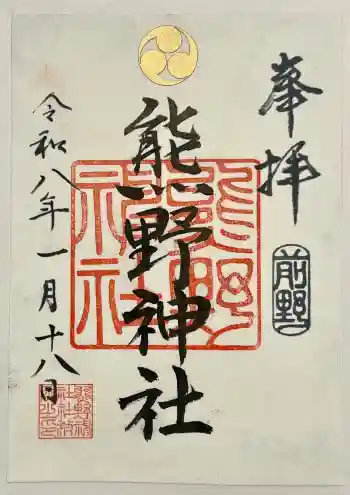 奉拝
前野
熊野神社
熊野神社
令和八年一月十八日